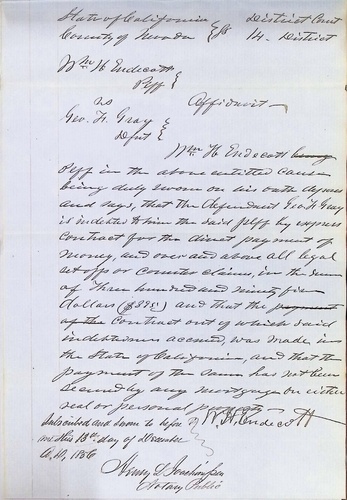 State of California } ss District Court
County of Nevada 14. District
Wm H Endecott
Plff
vs Affidavit
Geo. H. Gray
Deft
Wm H Endecott being
Plff in the above entitled cause
being duly sworn on his oath deposes
and says, that the defendant Geo H Gray
is indebted to him the said plff by express
contract for the direct payment of
money, and over and above all legal
set offs or counter claims, in the sum
of Three hundred and ninety five
dollars ($395) and that the payment
of the contract out of which said
indebtness accrued, was made in
the State of California, and that the
payment of the same has not been
secured by any mortgage on either
real or personal property
W. H. Endecott
Subscribed and sworn to before
me this 13th day of December
A.D. 1856
Henry L. Joachimsen
Notary Public